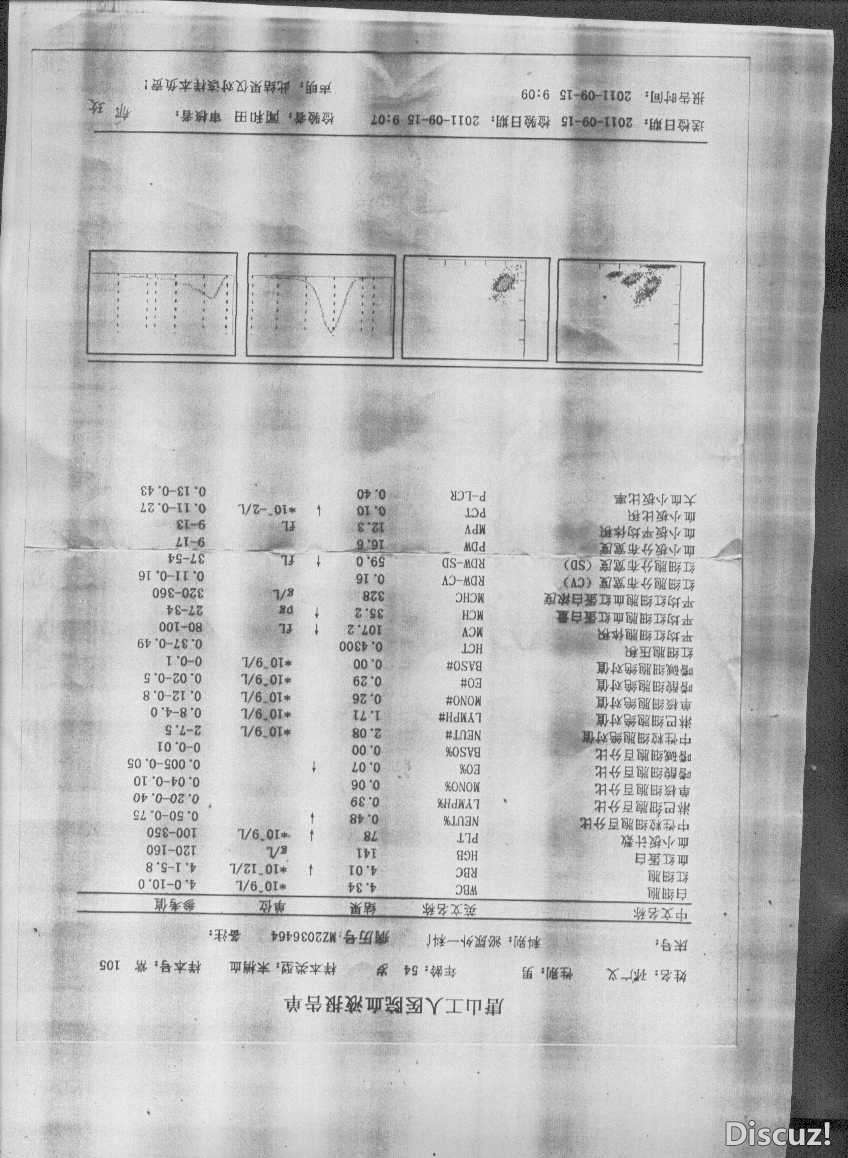 唐山工人医院血液报告单
姓名: 孙广义 性别: 男 年龄: 54 岁 样本类型: 末梢血 样本号: 常 105
床号: 科别: 泌尿外一科 病历号: MZ2036464 备注:
中文名称 英文名称 结果 单位 参考值
白细胞 WBC 4.34 *10^9/L 4.0-10.0
红细胞 RBC 4.01 ↓ *10^12/L 4.1-5.8
血红蛋白 HGB 141 g/L 120-160
血小板计数 PLT 78 ↓ *10^9/L 100-350
中性粒细胞百分比 NEUT% 0.48 ↓ 0.50-0.75
淋巴细胞百分比 LYMPH% 0.39 0.20-0.40
单核细胞百分比 MONO% 0.06 0.04-0.10
嗜酸细胞百分比 EO% 0.07 ↑ 0.005-0.05
嗜碱细胞百分比 BASO% 0.00 0-0.01
中性粒细胞绝对值 NEUT# 2.08 *10^9/L 2-7.5
淋巴细胞绝对值 LYMPH# 1.71 *10^9/L 0.8-4.0
单核细胞绝对值 MONO# 0.26 *10^9/L 0.12-0.8
嗜酸细胞绝对值 EO# 0.29 *10^9/L 0.02-0.5
嗜碱细胞绝对值 BASO# 0.00 *10^9/L 0-0.1
红细胞压积 HCT 0.4300 0.37-0.49
平均红细胞体积 MCV 107.2 ↑ fL 80-100
平均红细胞血红蛋白量 MCH 35.2 ↑ pg 27-34
平均红细胞血红蛋白浓度 MCHC 328 g/L 320-360
红细胞分布宽度(CV) RDW-CV 0.16 0.11-0.16
红细胞分布宽度(SD) RDW-SD 59.0 ↑ fL 37-54
血小板分布宽度 PDW 16.6 9-17
血小板平均体积 MPV 12.3 fL 9-13
血小板比积 PCT 0.10 ↓ *10^-2/L 0.11-0.27
大血小板比率 P-LCR 0.40 0.13-0.43
送检日期: 2011-09-15 检验日期: 2011-09-15 9:07 检验者: 阚和田 审核者:
报告时间: 2011-09-15 9:09 声明: 此结果仅对该样本负责!
Discuz!